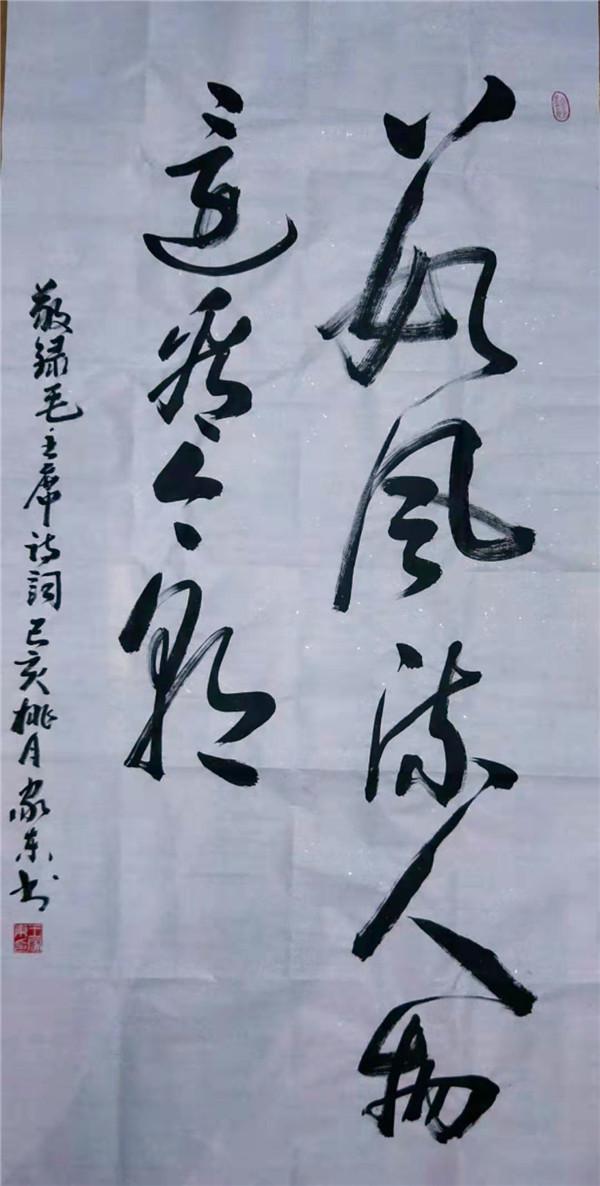 数风流人物
還看今朝
敬録毛主席诗詞己亥桃月家东书